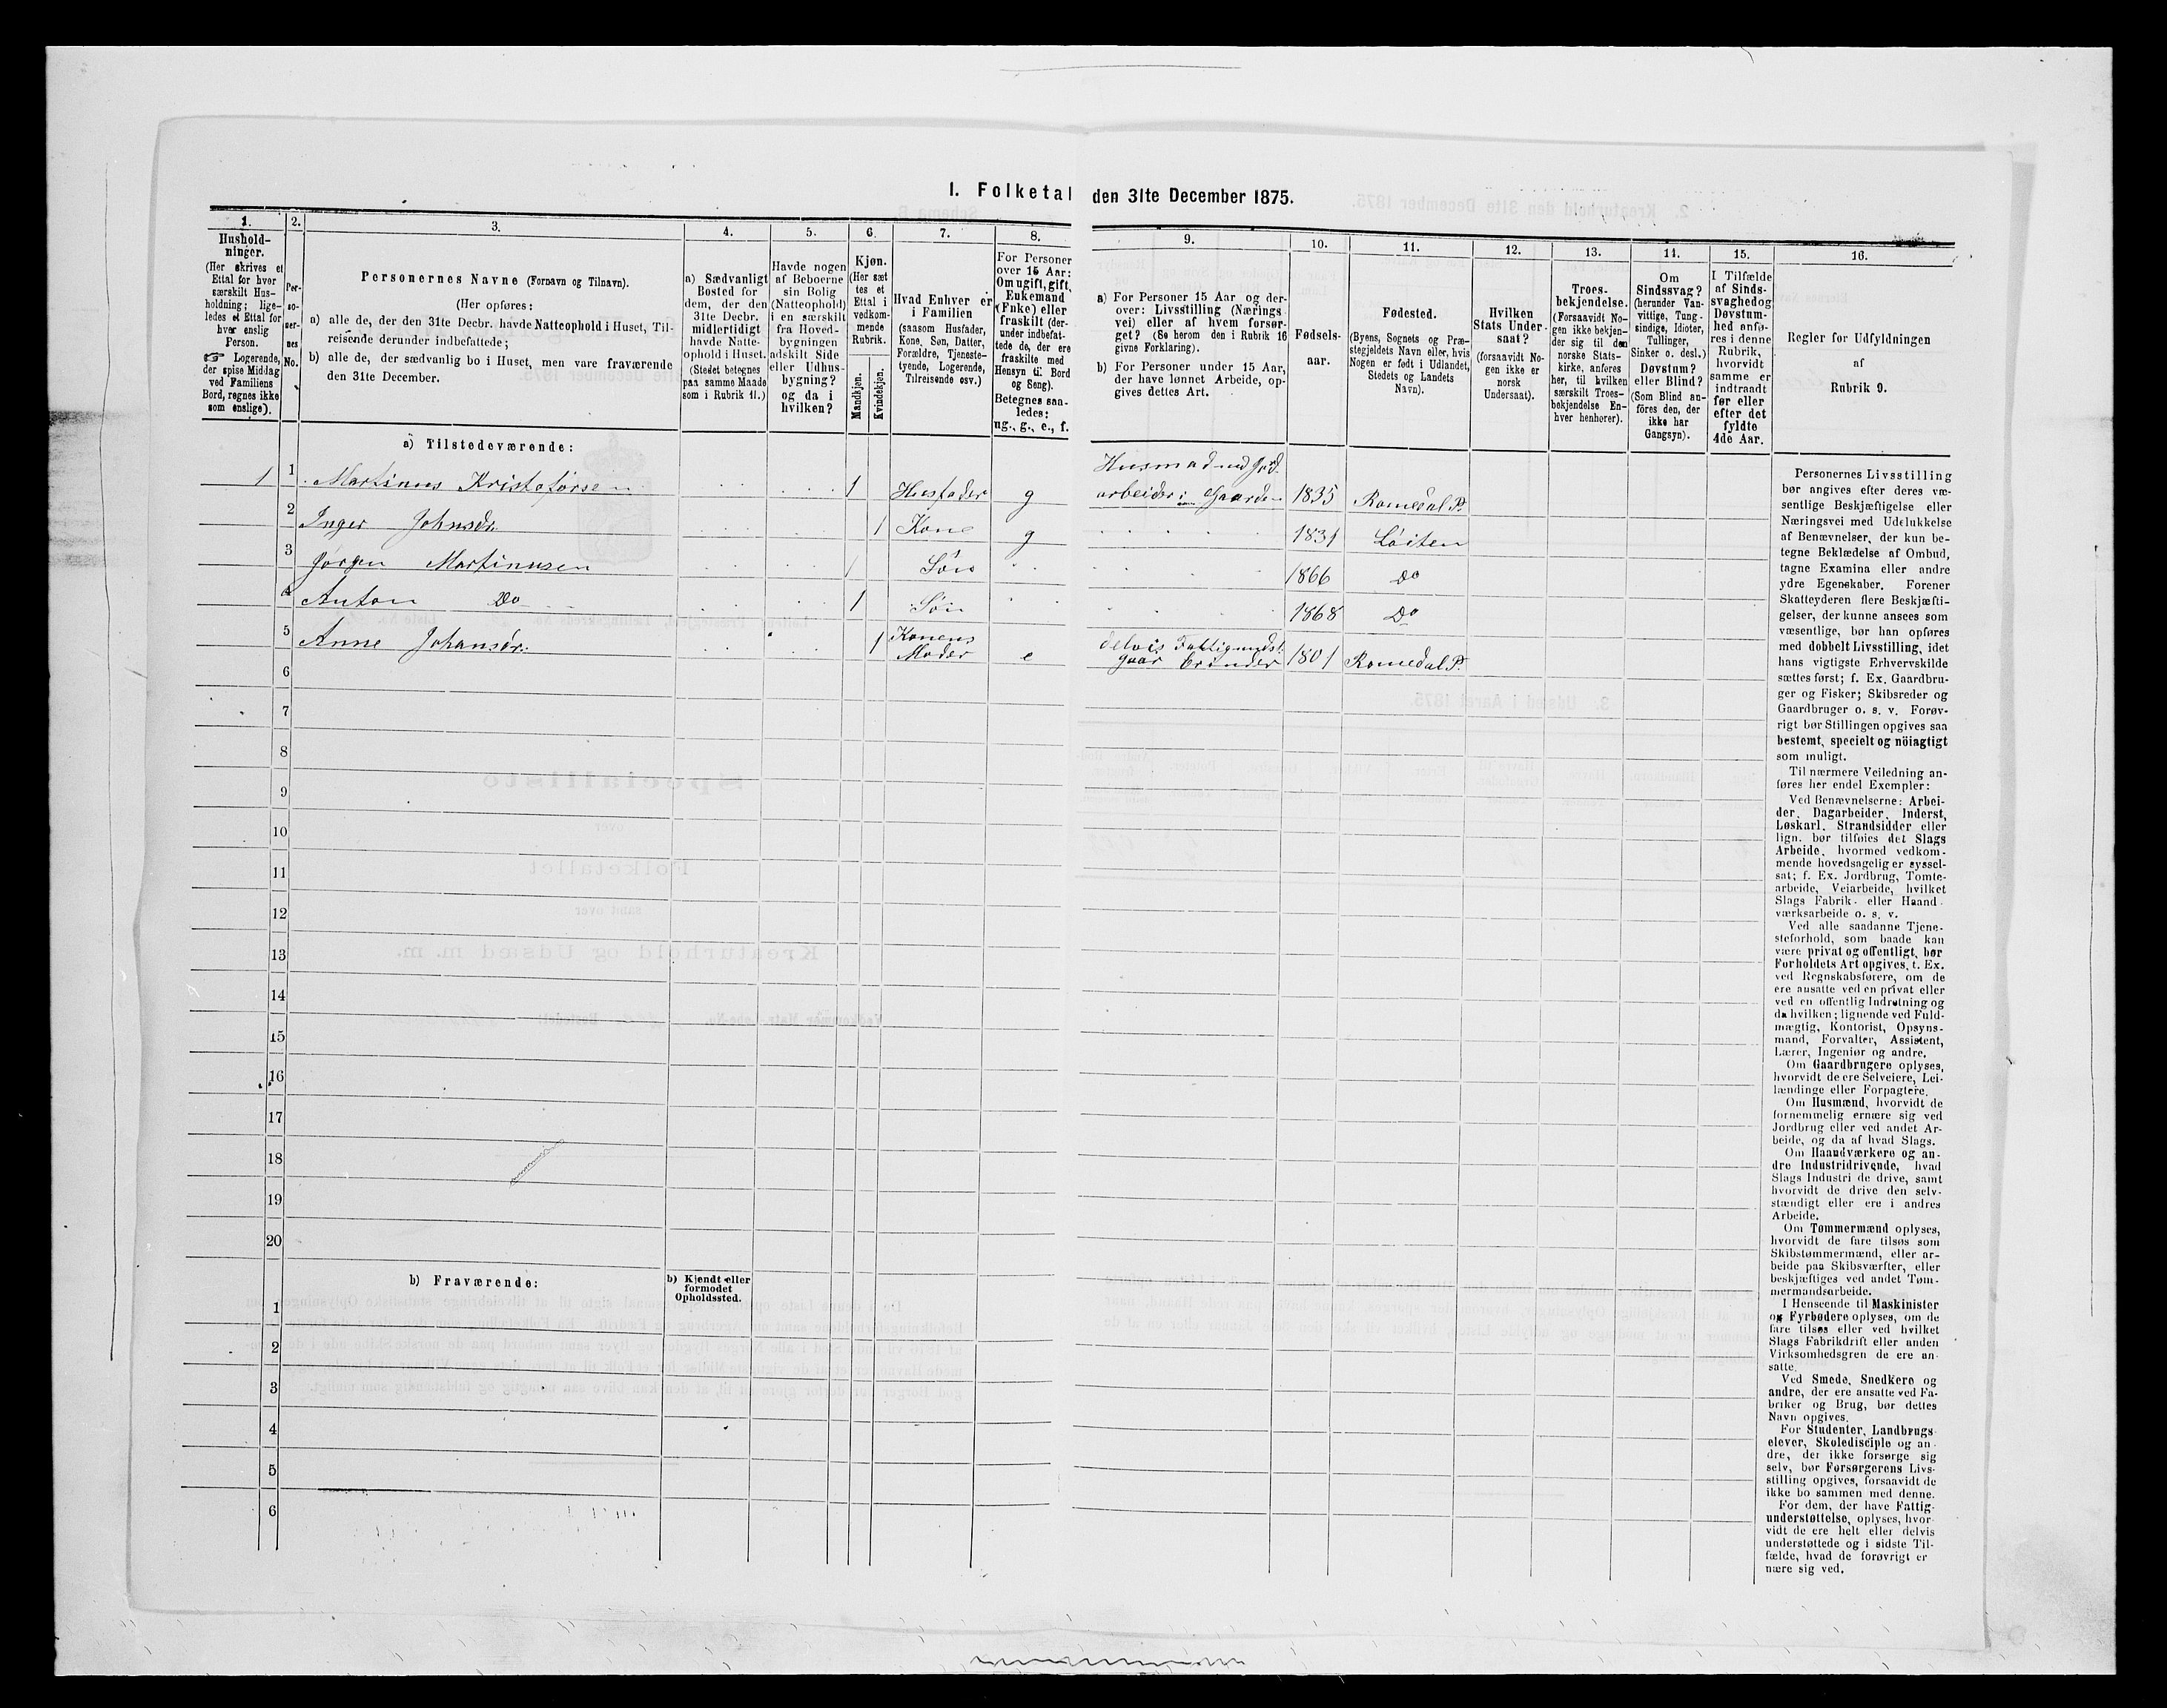 I. Folketal den 31te December 1875.
1.
Hushold-
ninger.
(Her skrives et
Ettal for hver
særskilt Hus-
holdning; lige-
ledes et Ettal for
hver enslig
Person.
☞ Logerende,
der spise Middag
ved Familiens
Bord, regnes ikke
som enslige).
2.
Per-
so-
ner-
nes
No.
3.
Personernes Navne (Fornavn og Tilnavn).
(Her opføres:
a) alle de, der den 31te Decbr. havde Natteophold i Huset, Til-
reisende derunder indbefattede;
b) alle de, der sædvanlig bo i Huset, men vare fraværende
den 31te December.
4.
a) Sædvanligt
Bosted for
dem, der den
31te Decbr.
midlertidigt
havde Natte-
ophold i Huset.
(Stedet betegnes
paa samme Maade
som i Rubrik 11.)
5.
Havde nogen
af Beboerne
sin Bolig
(Natteophold)
i en særskilt
fra Hoved-
bygningen
adskilt Side
eller Udhus-
bygning?
og da i
hvilken?
6.
Kjøn.
(Her sæt
tes et
Ettal i
vedkom-
mende
Rubrik.
Mandkjøn.
Kvindekjøn.
7.
Hvad Enhver er
i Familien
(saasom Husfader,
Kone, Søn, Datter,
Forældre, Tjeneste-
tyende, Logerende,
Tilreisende osv.)
8.
For Personer
over 15 Aar:
Om ugift, gift,
Enkemand
(Enke) eller
fraskilt (der-
under indbefat-
tede de, der ere
fraskilte med
Hensyn til Bord
og Seng).
Betegnes saa-
ledes:
ug., g., e., f.
9.
a) For Personer 15 Aar og der-
over: Livsstilling (Nærings
vei) eller af hvem forsør-
get? (Se herom den i Rubrik 16
givne Forklaring).
b) For Personer under 15 Aar,
der have lønnet Arbeide, op-
gives dettes Art.
10.
Fødsels-
aar.
11.
Fødested.
(Byens, Sognets og Præ-
stegjeldets Navn eller, hvis
Nogen er født i Udlandet,
Stedets og Landets
Navn).
12.
Hvilken
Stats Under-
saat?
(forsaavidt No-
gen ikke er
norsk
Undersaat).
13.
Troes-
bekjendelse.
(Forsaavidt No-
gen ikke bekjen-
der sig til den
norske Stats-
kirke, anføres
her, til hvilken
særskilt Troes-
bekjendelse En-
hver henhører).
14.
Om
Sindssvag?
(herunder Van-
vittige, Tung-
sindige, Idioter,
Tullinger,
Sinker o. desl.)
Døvstum?
eller Blind?
(Som Blind an-
föres den, der
ikke har
Gangsyn).
15.
I Tilfælde
af Sinds-
svaghed og
Døvstum-
hed anfø-
res i denne
Rubrik,
hvorvidt
samme er
indtraadt
før eller
efter det
fyldte
4de Aar.
16.
Regler for Udfyldningen
af
Rubrik 9.
a) Tilstedeværende:
1 1 Martinus Kristofersen 1 Husfader g Husmand med Jord. arbeider i Gaarden 1835 Romedal P.
2 Inger Johnsdr. 1 Kone g 1831 Löiten
3 Jørgen Martinusen 1 Søn 1866 Do
4 Anton Do 1 Søn 1868 Do
5 Anne Johansdr. 1 Konens Moder e delvis Fattigundst. 1801 Romedal P.
6
7
8
9
10
11
12
13
14
15
16
17
18
19
20
b) Fraværende:
b) Kjendt eller
formodet
Opholdssted.
1
2
3
4
5
6
Personernes Livsstilling
bør angives efter deres væ-
sentlige Beskjæftigelse eller
Næringsvei med Udelukkelse
af Benævnelser, der kun be-
tegne Beklædelse af Ombud,
tagne Examina eller andre
ydre Egenskaber. Forener
Skatteyderen flere Beskjæfti-
gelser, der kunne ansees som
væsentlige, bør han opføres
med dobbelt Livsstilling, idet
hans vigtigste Erhvervskilde
sættes først; f. Ex. Gaardbru-
ger og Fisker; Skibsreder og
Gaardbruger o. s. v. Forøv-
rigt bør Stillingen opgives saa
bestemt, specielt og nöiagtigt
som muligt.
Til nærmere Veiledning an-
føres her endel Exempler:
Ved Benævnelserne: Arbei-
der, Dagarbeider, Inderst,
Løskarl, Strandsidder eller
lign. bør tilføies det Slags
Arbeide, hvormed vedkom-
mende hovedsagelig er syssel-
sat; f. Ex. Jordbrug, Tomte-
arbeide, Veiarbeide, hvilket
Slags Fabrik- eller Haand-
værksarbeide o. s. v.
Ved alle saadanne Tjene-
steforhold, som baade kan
være privat og offentligt, bør
Forholdets Art opgives, t. Ex.
ved Regnskabsførere, om de
ere ansatte ved en privat eller
ved en offentlig Indretning og
da hvilken; lignende ved Fuld-
mægtig, Kontorist, Opsyns-
mand, Forvalter, Assistent,
Lærer, Ingeniør og andre.
Om Gaardbrugere oplyses,
hvorvidt de ere Selveiere, Lei-
lændinge eller Forpagtere.
Om Husmænd, hvorvidt de
fornemmelig ernære sig ved
Jordbrug eller ved andet Ar-
beide, og da af hvad Slags.
Om Haandværkere og an-
dre Industridrivende, hvad
Slags Industri de drive, samt
hvorvidt de drive den selv-
stændigt eller ere i andres
Arbeide.
Om Tømmermænd oplyses,
hvorvidt de fare tilsøs som
Skibstømmermænd, eller ar-
beide paa Skibsværfter, eller
beskjæftiges ved andet Tøm-
mermandsarbeide.
I Henseende til Maskinister
og Fyrbødere oplyses, om de
fare tilsøs eller ved hvilket
Slags Fabrikdrift eller anden
Virksomhedsgren de ere an-
satte.
Ved Smede, Snedkere og
andre, der ere ansatte ved Fa-
briker og Brug, bør dettes
Navn opgives.
For Studenter, Landbrugs-
elever, Skoledisciple og an-
dre, der ikke forsørge sig
selv, bør Forsørgerens Livs-
stilling opgives, forsaavidt de
ikke bo sammen med denne.
For dem, der have Fattig-
understøttelse, oplyses, hvor-
vidt de ere helt eller delvis
understøttede og i sidste Til-
fælde, hvad de forøvrigt er
nære sig ved.